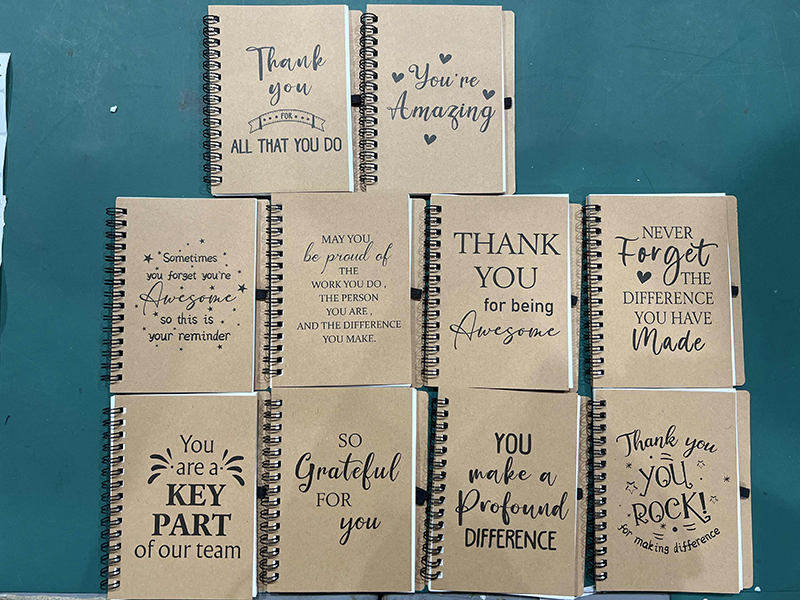 Thank
you
FOR
ALL THAT YOU DO
You're
Amazing
Sometimes
you forget you're
Awesome
so this is
your reminder
MAY YOU
be proud of
THE
WORK YOU DO ,
THE PERSON
YOU ARE ,
AND THE DIFFERENCE
YOU MAKE.
THANK
YOU
for being
Awesome
NEVER
Forget
THE
DIFFERENCE
YOU HAVE
Made
You
are a
KEY
PART
of our team
SO
Grateful
FOR
you
YOU
make a
Profound
DIFFERENCE
Thank you
YOU
ROCK!
for making difference